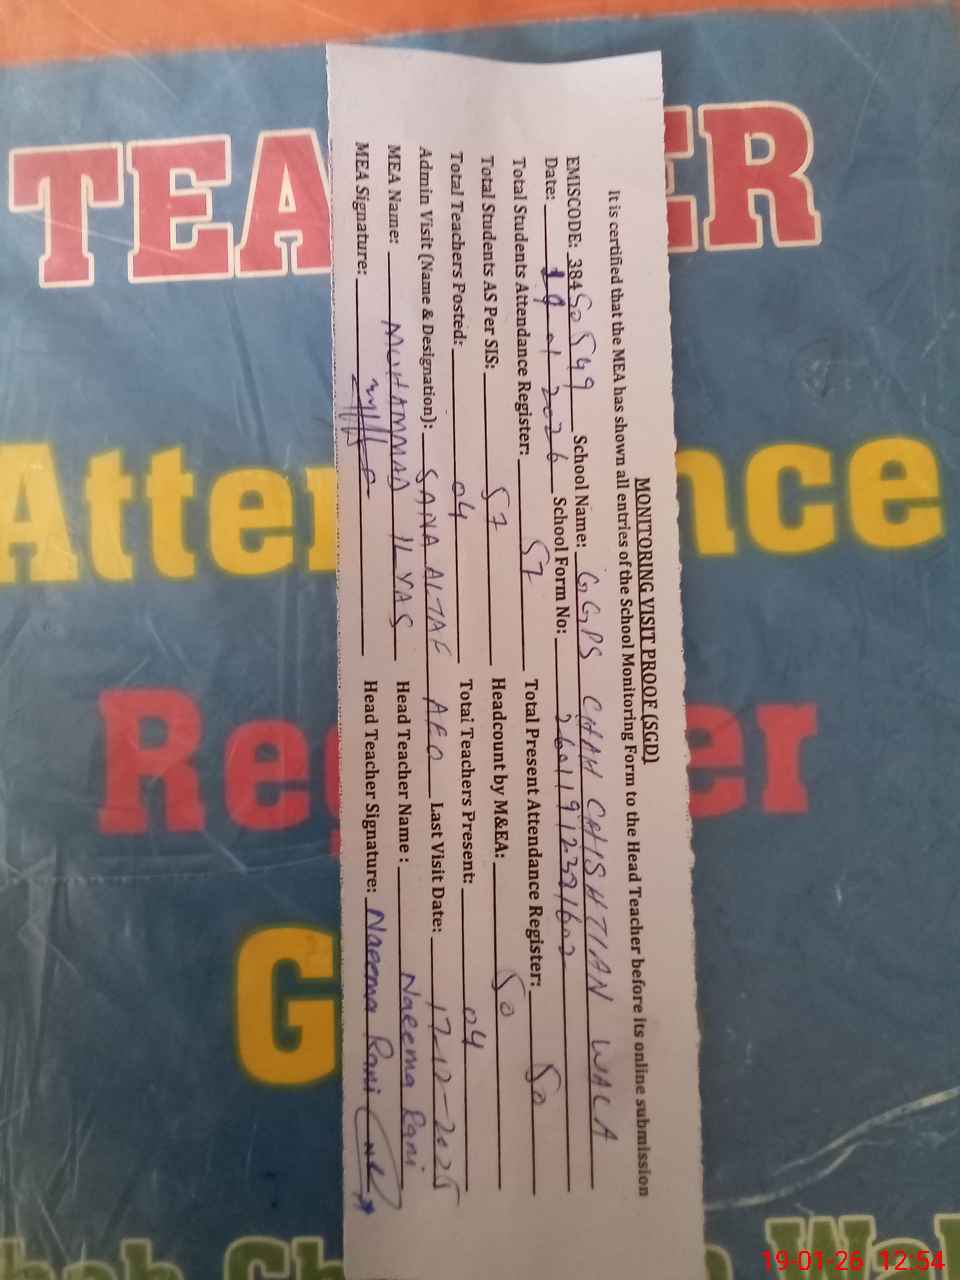 TEA ER
Atte nce
Re er
G
MONITORING VISIT PROOF (SGD)
It is certified that the MEA has shown all entries of the School Monitoring Form to the Head Teacher before its online submission
EMISCODE: 38450549 School Name: GGPS CHAH CHISHTIAN WALA
Date: 19 01 2026 School Form No:
Total Students Attendance Register: 57 Total Present Attendance Register: 50
Total Students AS Per SIS: 57 Headcount by M&EA: 50
Total Teachers Posted: 04 Total Teachers Present: 04
Admin Visit (Name & Designation): SANA ALTAF AEO Last Visit Date: 17-12-2025
MEA Name: MUHAMMAD ILYAS Head Teacher Name: Naeema Rani
MEA Signature: Head Teacher Signature: Naeema Rani
19-01-26 12:54